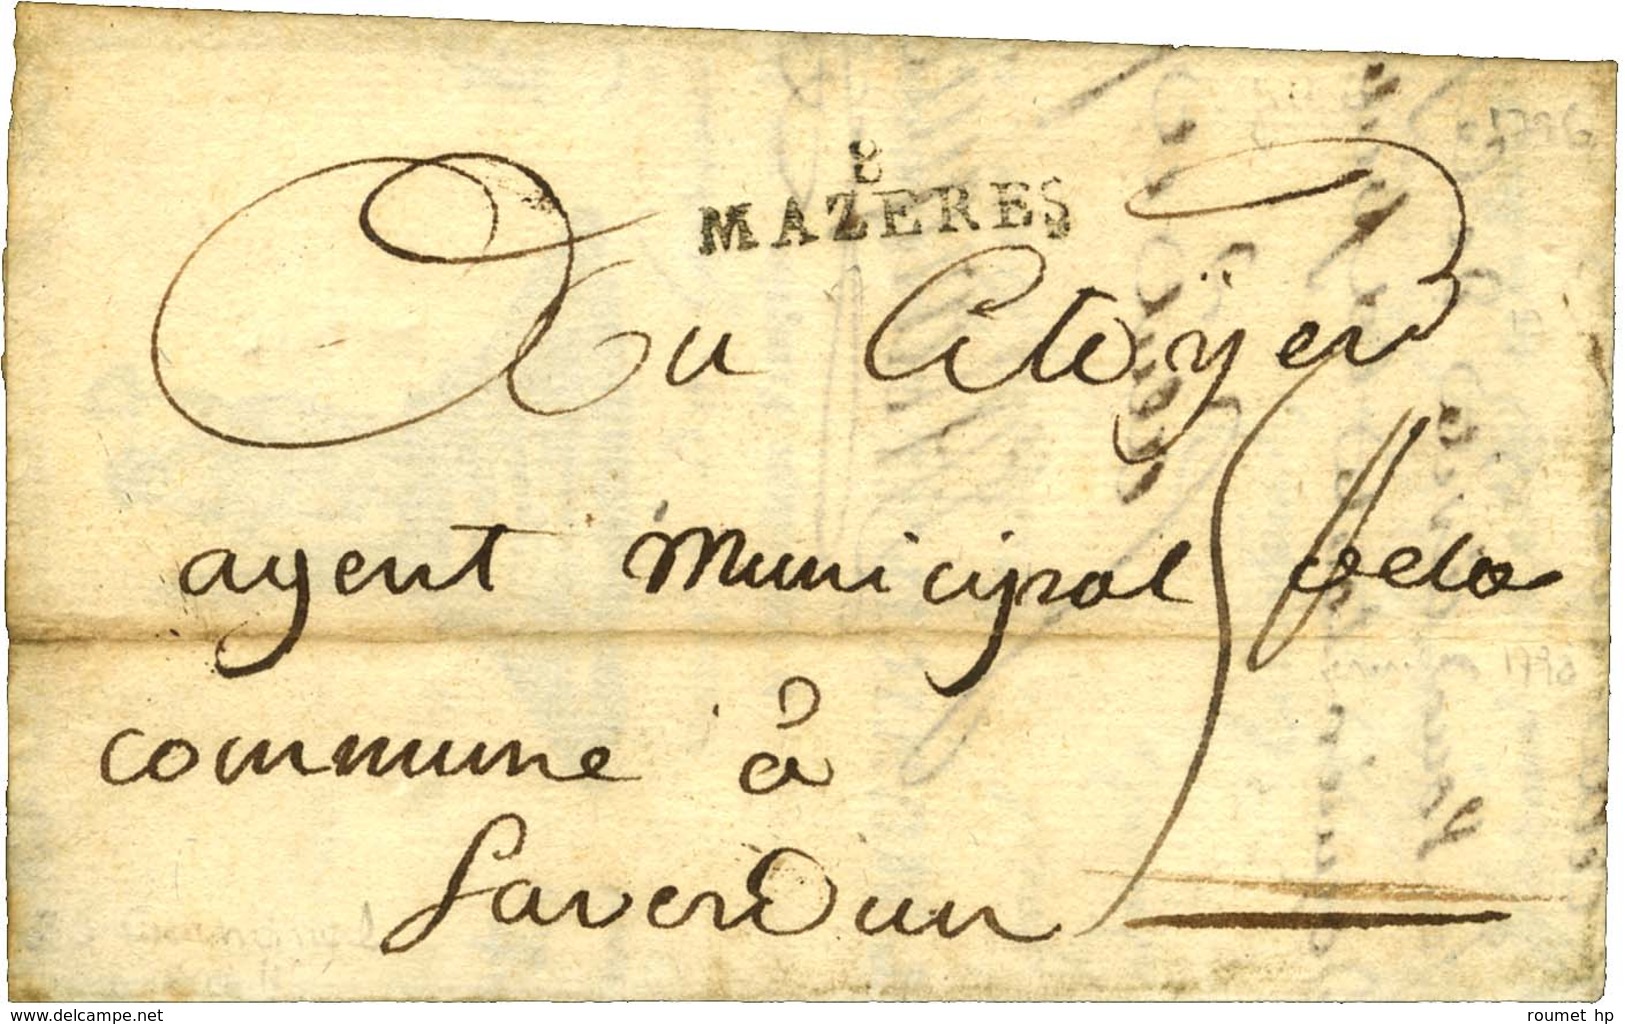 8
MAZERES
Au Citoÿen
agent municipal de la
commune à
Saverdun
1796
www.delcampe.net
roumet hp